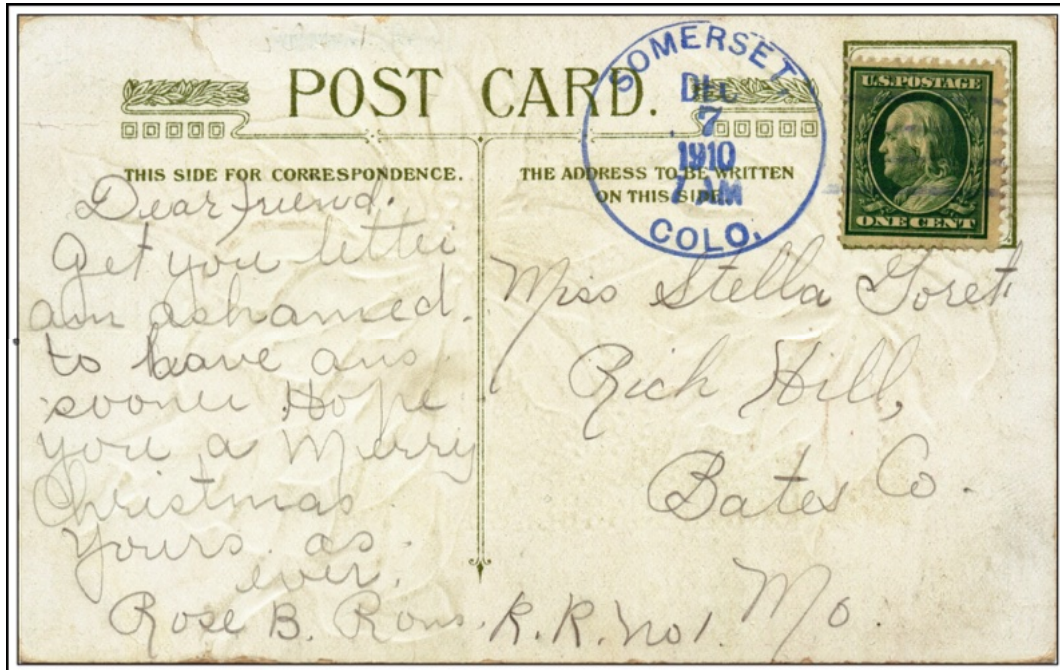 POST CARD.
SOMERSET
DEC
7
1910
AM
COLO.
U.S. POSTAGE
ONE CENT
THIS SIDE FOR CORRESPONDENCE.
THE ADDRESS TO BE WRITTEN
ON THIS SIDE
Dear friend.
Get you letter
am ashamed.
to have ans
sooner. Hope
you a Merry
Christmas
yours. as.
ever.
Rose B.
Miss Stella
Rich Hill,
Bates Co.
Mo.
R.R. No 1.